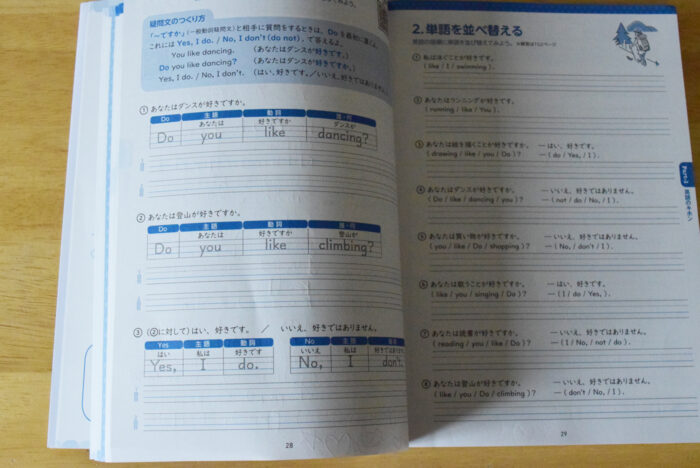 疑問文のつくり方
「～ですか」(一般動詞疑問文)と相手に質問をするときは、Do を最初に置く。
これには Yes, I do. / No, I don't (do not). で答えるよ。
You like dancing. (あなたはダンスが好きです。)
Do you like dancing? (あなたはダンスが好きですか。)
Yes, I do. / No, I don't. (はい、好きです。/いいえ、好きではありません。)
① あなたはダンスが好きですか。
Do 主語 動詞
あなたは 好きですか ダンスが
Do you like dancing?
② あなたは登山が好きですか。
Do 主語 動詞
あなたは 好きですか 登山が
Do you like climbing?
③ (②に対して)はい、好きです。 / いいえ、好きではありません。
Yes 主語 動詞
はい 私は 好きです
Yes, I do.
No 主語
いいえ 私は 好きではありません
No, I don't.
28
2. 単語を並べ替える
① 私は泳ぐことが好きです。
( like / I / swimming ).
② あなたはランニングが好きです。
( running / like / You ).
③ あなたは絵を描くことが好きですか。 ― はい、好きです。
( drawing / like / you / Do )? ― ( do / Yes, / I ).
④ あなたはダンスが好きですか。 ― いいえ、好きではありません。
( Do / like / dancing / you )? ― ( not / do / No, / I ).
⑤ あなたは買い物が好きですか。 ― いいえ、好きではありません。
( you / like / Do / shopping )? ― ( No, / don't / I ).
⑥ あなたは歌うことが好きですか。 ― はい、好きです。
( like / you / singing / Do )? ― ( I / do / Yes, ).
⑦ あなたは読書が好きですか。 ― いいえ、好きではありません。
( reading / you / like / Do )? ― ( I / No, / not / do ).
⑧ あなたは登山が好きですか。 ― いいえ、好きではありません。
( like / you / Do / climbing )? ― ( don't / No, / I ).
29
英語のキホン